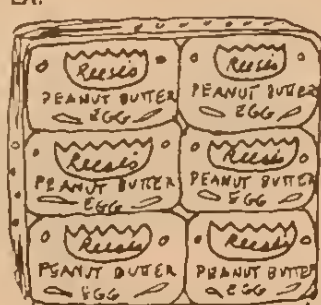 Reese's
PEANUT BUTTER
EGG
Reese's
PEANUT BUTTER
EGG
Reese's
PEANUT BUTTER
EGG
Reese's
PEANUT BUTTER
EGG
Reese's
PEANUT BUTTER
EGG
Reese's
PEANUT BUTTER
EGG